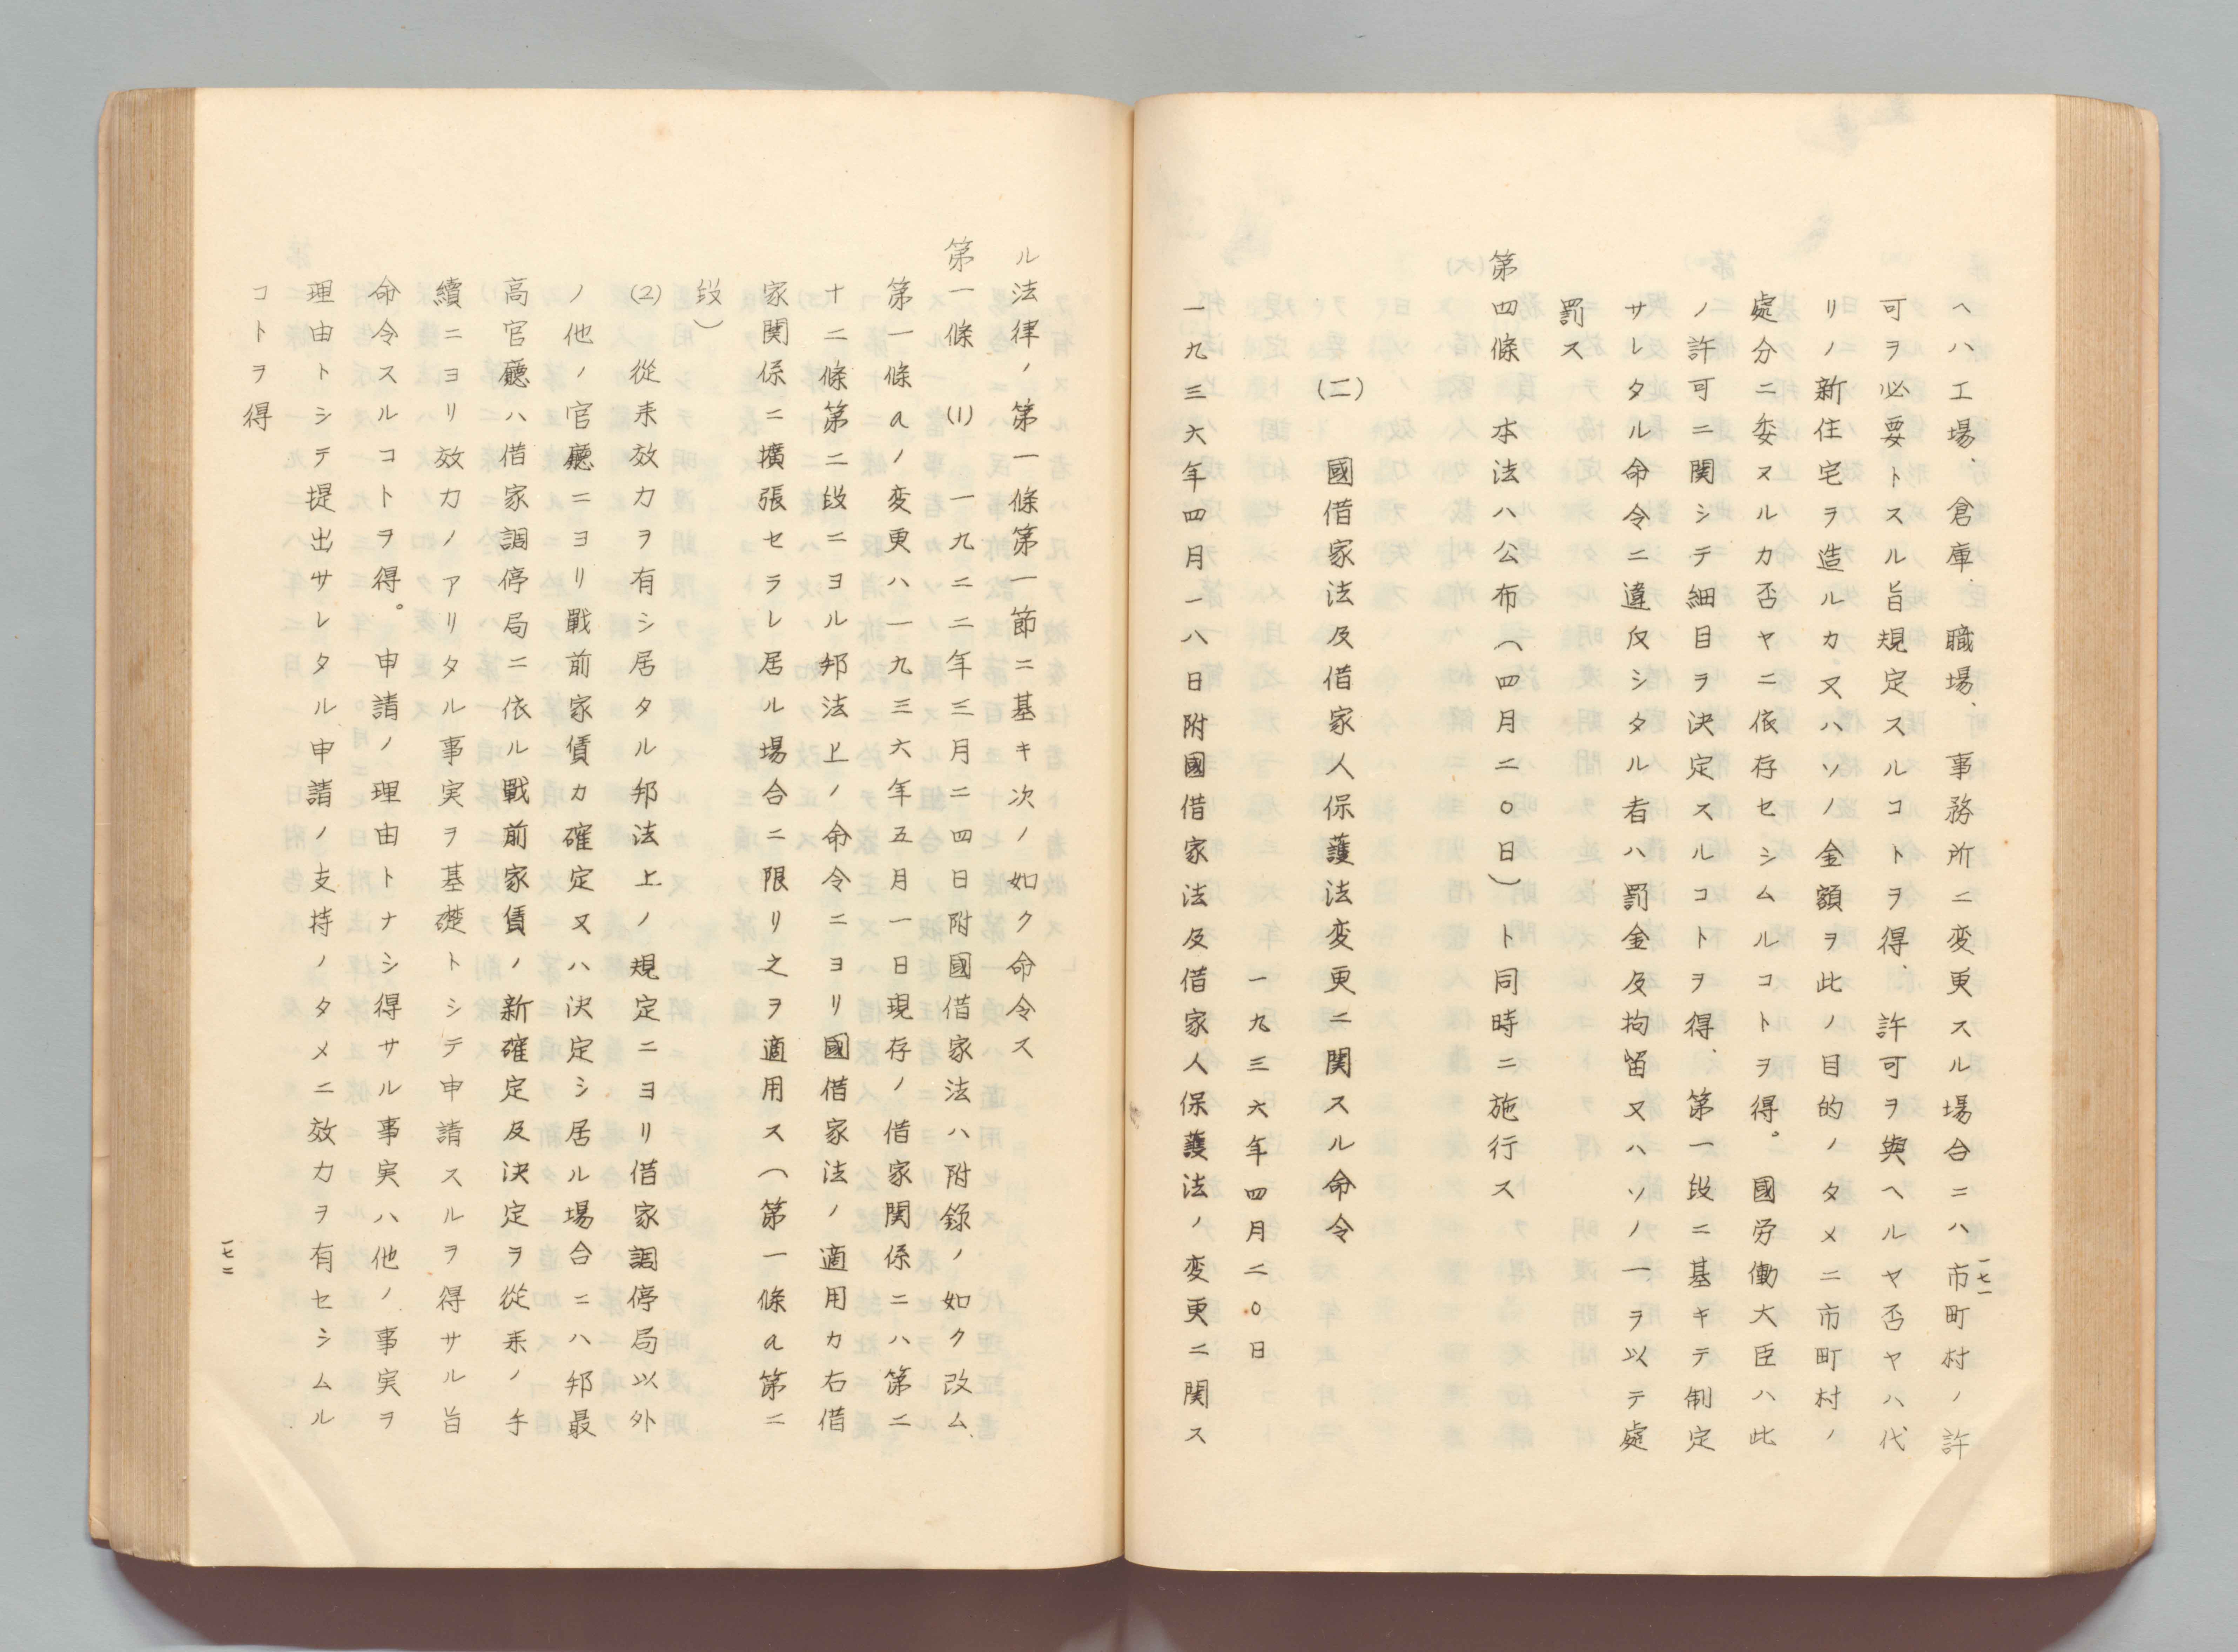 ヘハ工場、倉庫、職場、事務所ニ変更スル場合ニハ市町村ノ許
可ヲ必要トスル旨規定スルコトヲ得、許可ヲ與ヘルヤ否ヤハ代
リノ新住宅ヲ造ルカ又ハソノ金額ヲ此ノ目的ノタメニ市町村ノ
處分ニ委ヌルカ否ヤニ依存セシムルコトヲ得。國労働大臣ハ此
ノ許可ニ関シテ細目ヲ決定スルコトヲ得、第一段ニ基キテ制定
サレタル命令ニ違反シタル者ハ罰金及拘留又ハソノ一ヲ以テ處
罰ス
第四條 本法ハ公布(四月二〇日)ト同時ニ施行ス
(二) 國借家法及借家人保護法変更ニ関スル命令
一九三六年四月二〇日
一九三六年四月一八日附國借家法及借家人保護法ノ変更ニ関ス
一七一
ル法律ノ第一條第一節ニ基キ次ノ如ク命令ス
第一條 (1) 一九二二年三月二四日附國借家法ハ附錄ノ如ク改ム、
第一條aノ変更ハ一九三六年五月一日現存ノ借家関係ニハ第二
十二條第二段ニヨル邦法上ノ命令ニヨリ國借家法ノ適用カ右借
家関係ニ擴張セラレ居ル場合ニ限リ之ヲ適用ス(第一條a第二
段)
(2) 從来效力ヲ有シ居タル邦法上ノ規定ニヨリ借家調停局以外
ノ他ノ官廳ニヨリ戰前家賃カ確定又ハ決定シ居ル場合ニハ邦最
高官廳ハ借家調停局ニ依ル戰前家賃ノ新確定及決定ヲ從来ノ手
續ニヨリ效力ノアリタル事実ヲ基礎トシテ申請スルヲ得サル旨
命令スルコトヲ得。申請ノ理由トナシ得サル事実ハ他ノ事実ヲ
理由トシテ提出サレタル申請ノ支持ノタメニ效力ヲ有セシムル
コトヲ得
一七二